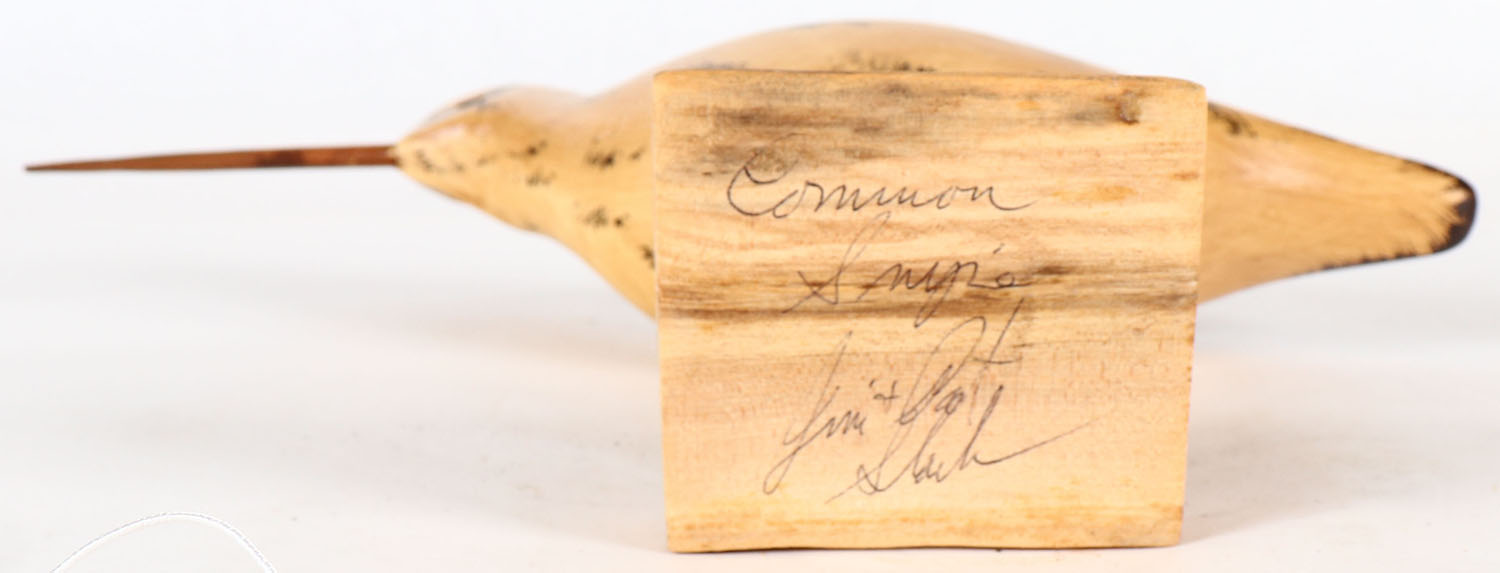 Common
Snipe
Jim +
Slack